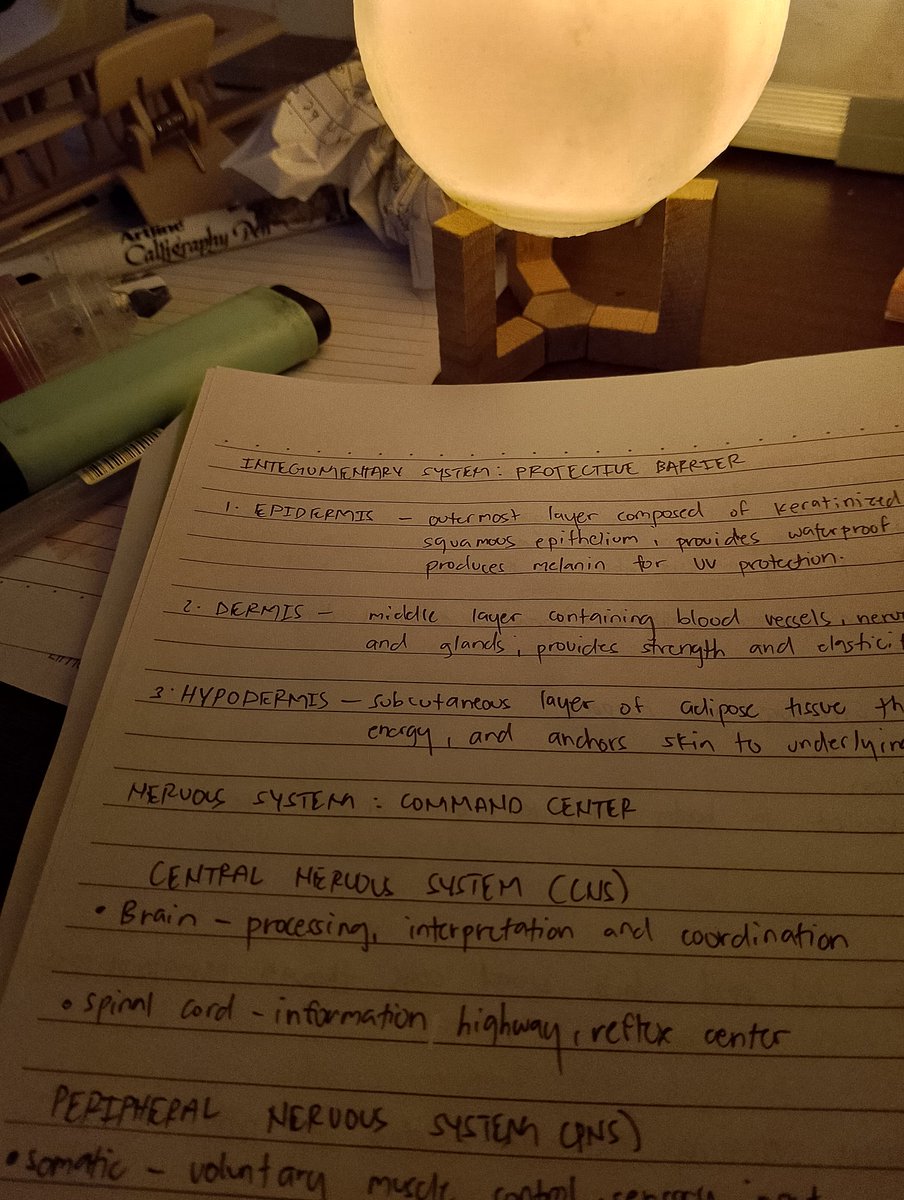 Artline
Calligraphy Pen
INTEGUMENTARY SYSTEM: PROTECTIVE BARRIER
1. EPIDERMIS – outermost layer composed of keratinized
squamous epithelium, provides waterproof
produces melanin for UV protection.
2. DERMIS – middle layer containing blood vessels,
and glands, provides strength and
3. HYPODERMIS – subcutaneous layer of adipose tissue
energy, and anchors skin to underlying
NERVOUS SYSTEM: COMMAND CENTER
CENTRAL NERVOUS SYSTEM (CNS)
• Brain – processing, interpretation and coordination
• spinal cord – information highway, reflex center
PERIPHERAL NERVOUS SYSTEM (PNS)
• somatic – voluntary muscle control, sensory input